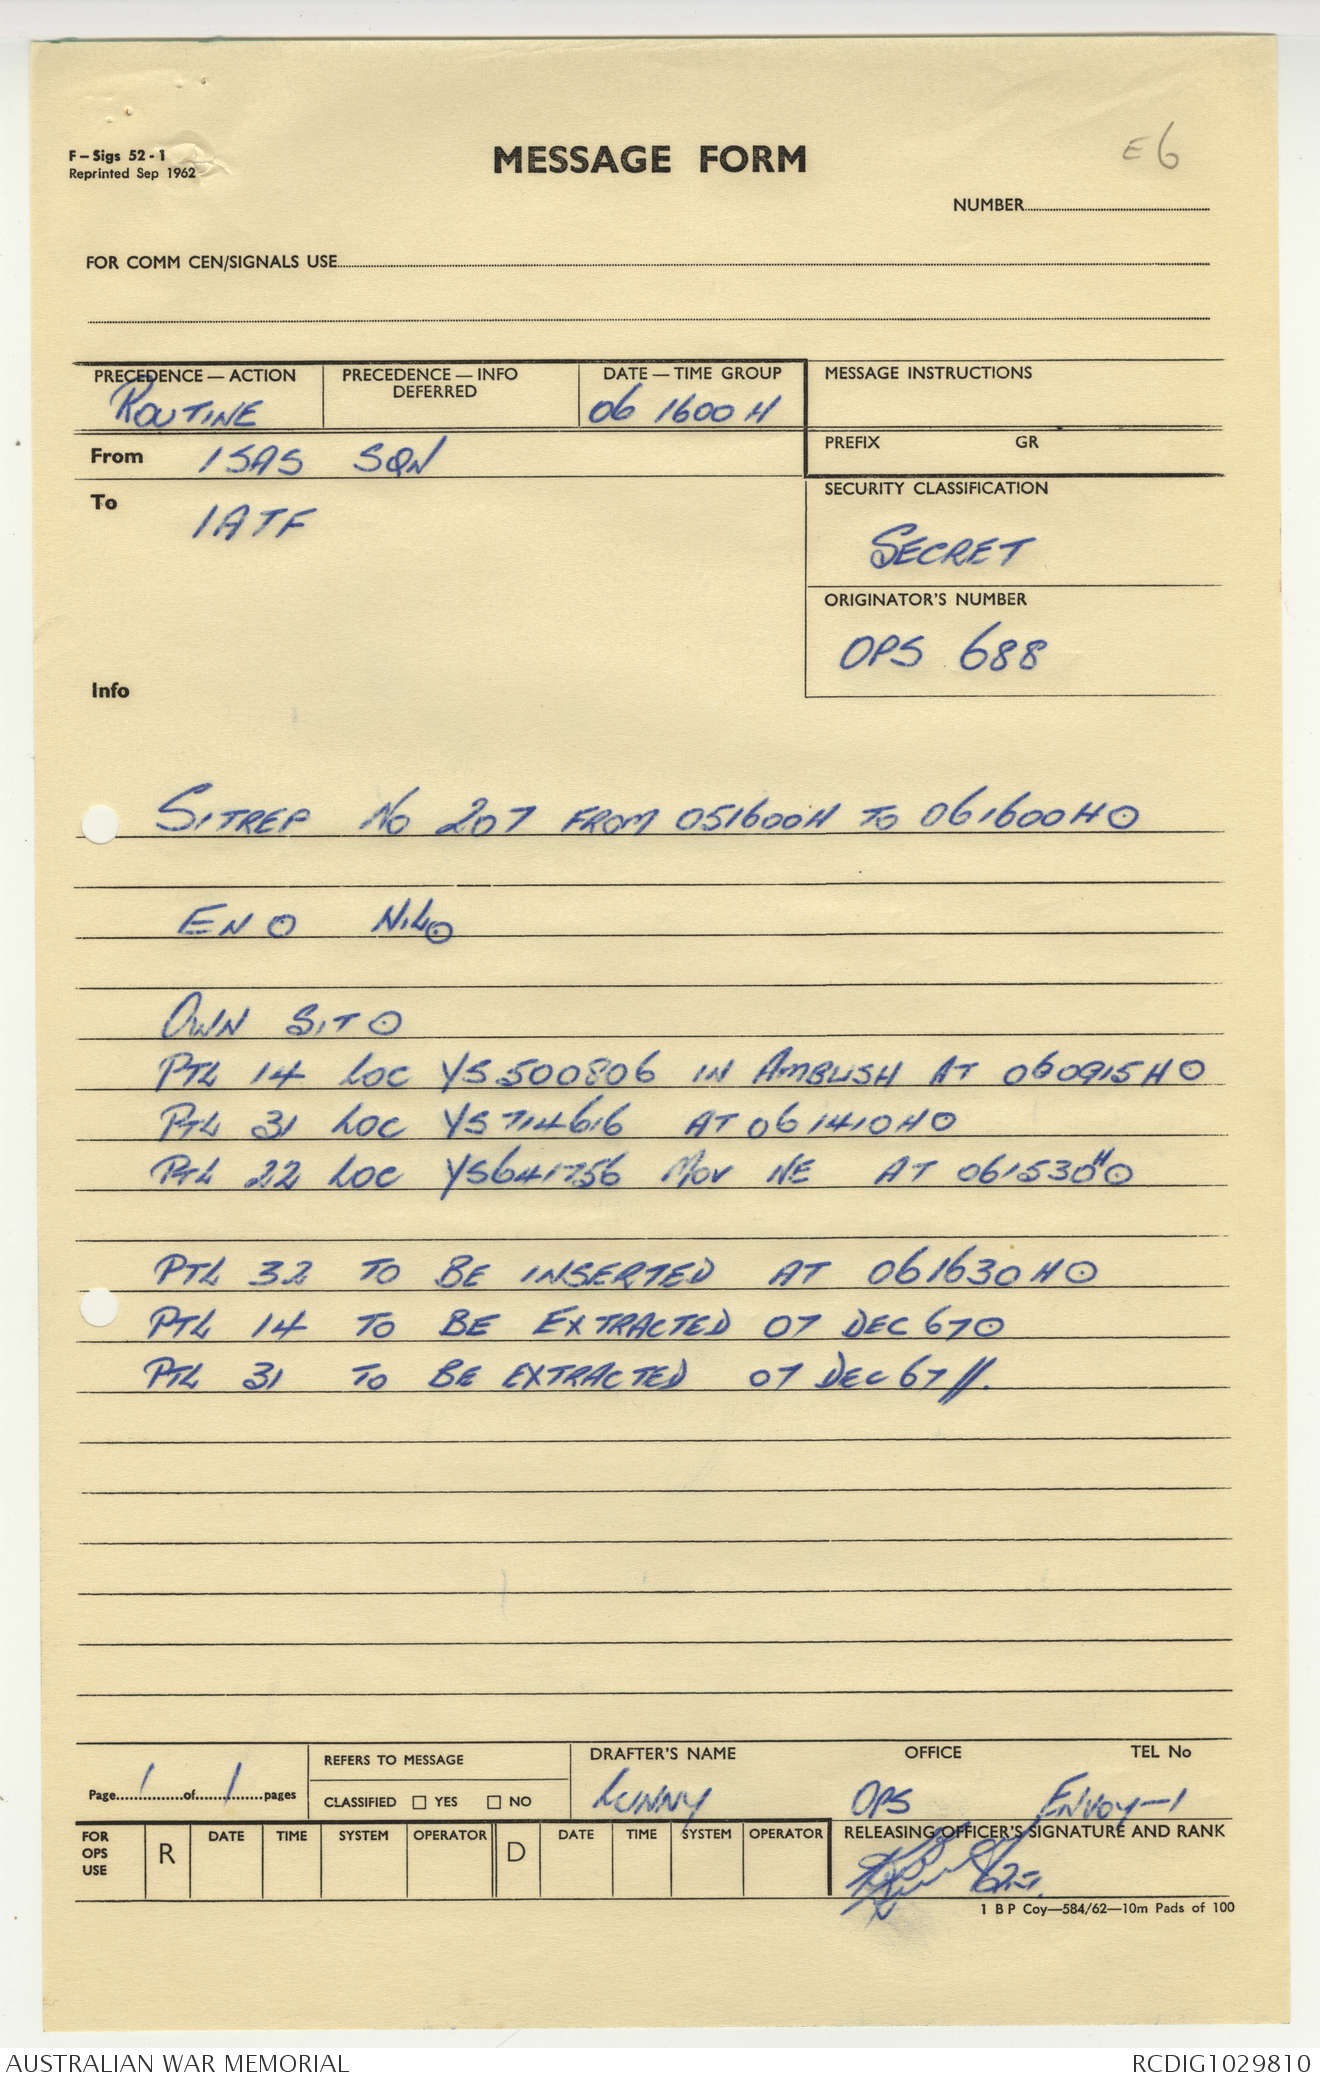 F – Sigs 52 - 1
Reprinted Sep 1962
MESSAGE FORM
E6
NUMBER
FOR COMM CEN/SIGNALS USE
PRECEDENCE — ACTION
ROUTINE
PRECEDENCE — INFO
DEFERRED
DATE — TIME GROUP
061600H
MESSAGE INSTRUCTIONS
From 1SAS SQN
PREFIX GR
To
1ATF
SECURITY CLASSIFICATION
SECRET
ORIGINATOR'S NUMBER
OPS 688
Info
SITREP No 207 FROM 051600H TO 061600H⊙
EN⊙ NIL⊙
OWN SIT⊙
PTL 14 LOC YS500806 IN AMBUSH AT 060915H⊙
PTL 31 LOC YS714616 AT 061410H⊙
PTL 22 LOC YS641756 MOV NE AT 061530H⊙
PTL 32 TO BE INSERTED AT 061630H⊙
PTL 14 TO BE EXTRACTED 07 DEC 67⊙
PTL 31 TO BE EXTRACTED 07 DEC 67//.
Page 1 of 1 pages
REFERS TO MESSAGE
CLASSIFIED ☐ YES ☐ NO
DRAFTER'S NAME
LUNNY
OFFICE
OPS
TEL No
ENVOY-1
FOR OPS USE
R
DATE TIME SYSTEM OPERATOR
D
DATE TIME SYSTEM OPERATOR
RELEASING OFFICER'S SIGNATURE AND RANK
1 B P Coy—584/62—10m Pads of 100
AUSTRALIAN WAR MEMORIAL
RCDIG1029810